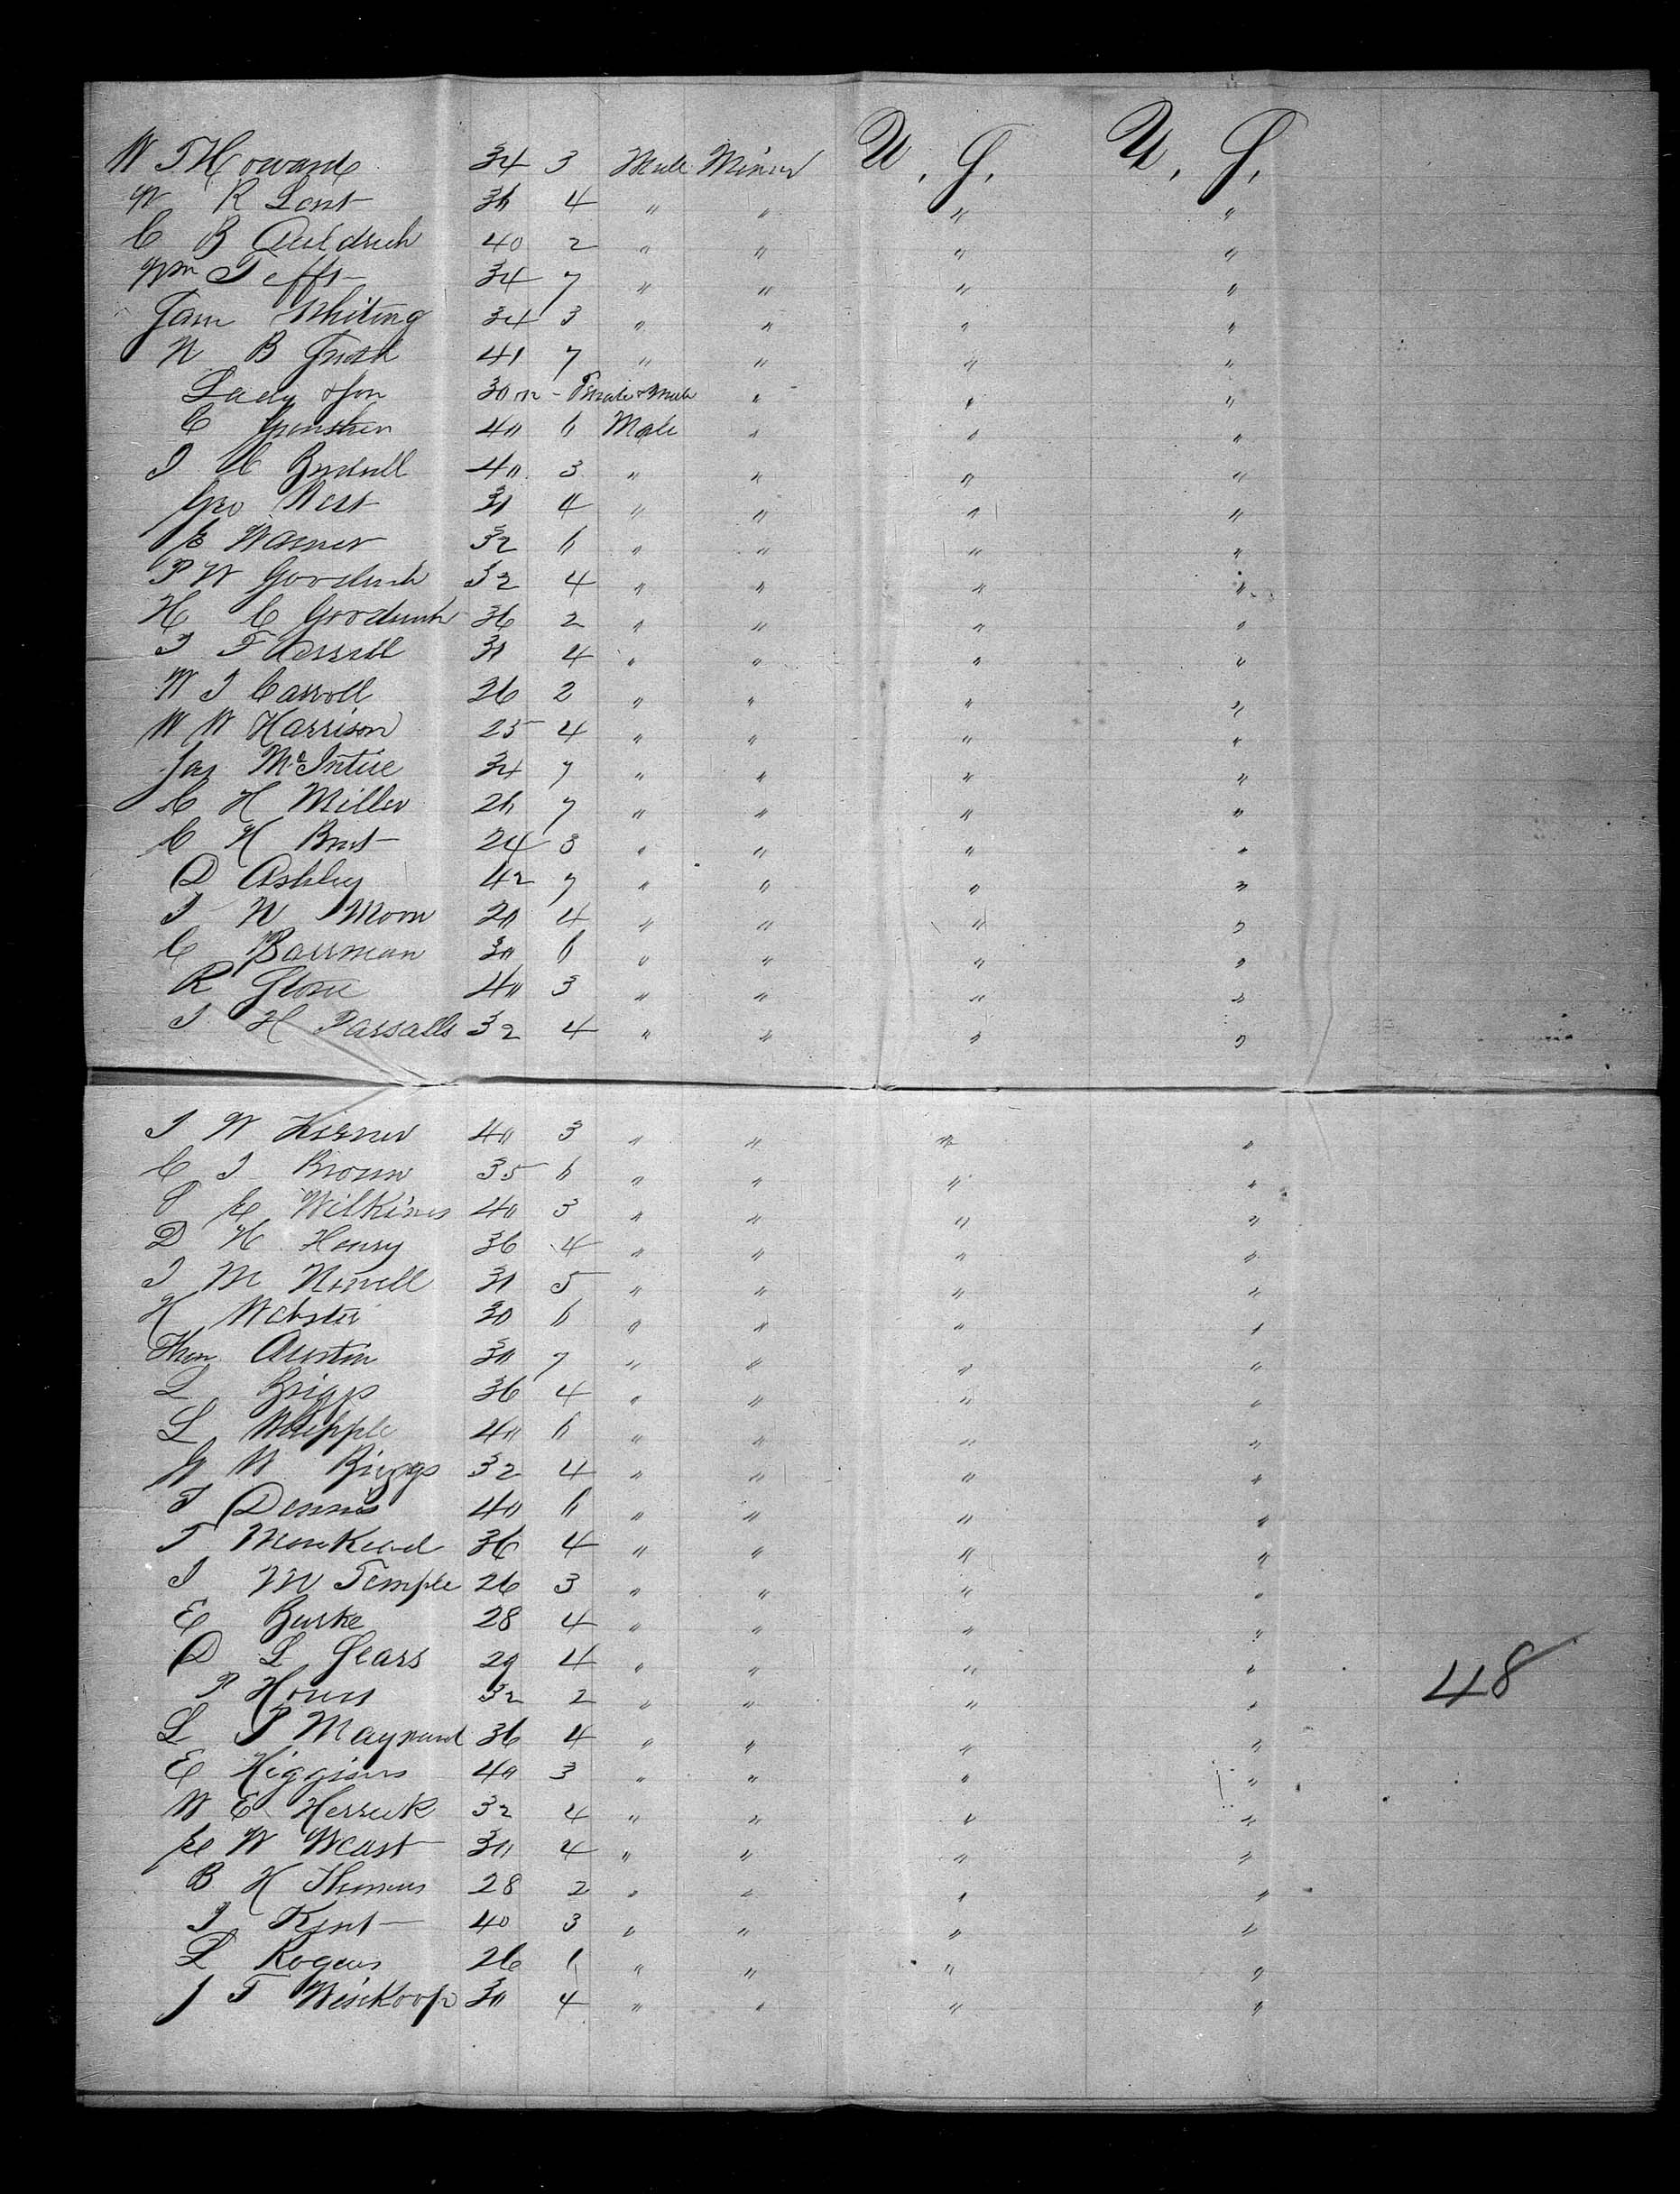 W T Howard 34 3 Male Miner U. S. U. S.
W R Lent 36 4 " " " "
C B Auldrich 40 2 " " " "
Wm Tefft 34 7 " " " "
Whiting 34 3 " " " "
N B 41 7 " " " "
Lady & Son 30 Female & Male " " "
C 40 6 Male " " "
J C 40 3 " " " "
Geo West 31 4 " " " "
E Warner 32 6 " " " "
P W 32 4 " " " "
H C 36 2 " " " "
J 31 4 " " " "
W J Carroll 26 2 " " " "
W W Harrison 25 4 " " " "
Jas McIntire 34 7 " " " "
C H Miller 26 7 " " " "
C H 24 3 " " " "
D Ashley 42 7 " " " "
J N Moon 20 4 " " " "
C Bauman 30 6 " " " "
R 40 3 " " " "
J H Passalls 32 4 " " " "
J W 40 3 " " " "
C J Brown 35 6 " " " "
S E Wilkins 40 3 " " " "
D H Henry 36 4 " " " "
J M Newell 31 5 " " " "
H Webster 30 6 " " " "
Austin 30 7 " " " "
L Briggs 36 4 " " " "
L Whipple 40 6 " " " "
W Briggs 32 4 " " " "
T Dennis 40 6 " " " "
T 36 4 " " " "
J M Temple 26 3 " " " "
E Burke 28 4 " " " "
D L Sears 29 4 " " " "
P 32 2 " " " "
48
L P Maynard 36 4 " " " "
E Higgins 40 3 " " " "
W E Herrick 32 4 " " " "
E W 30 4 " " " "
B H Thomas 28 2 " " " "
J Kent 40 3 " " " "
L Rogers 26 6 " " " "
J T Winkoop 30 4 " " " "